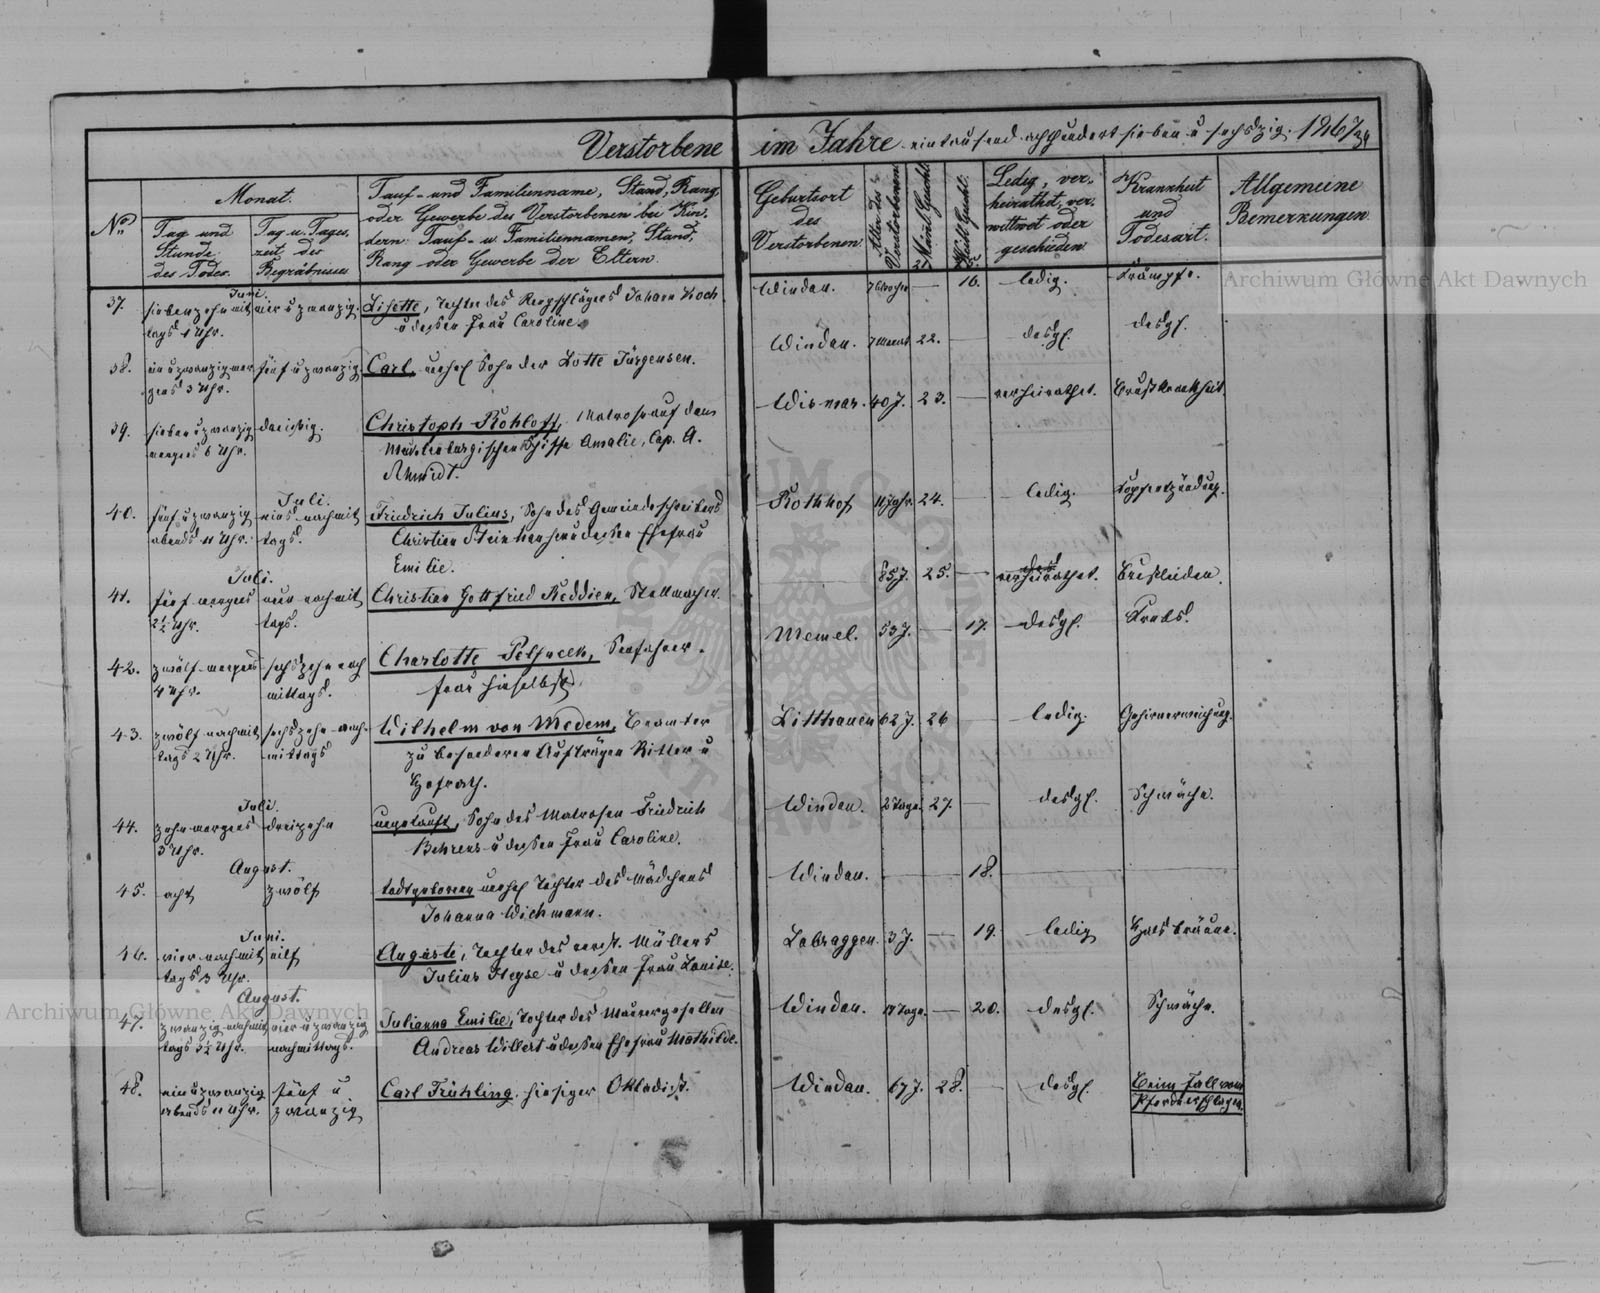 Verstorbene im Jahre eintausend achthundert sieben u sechszig. 1867
34
No.
Monat.
Tag und Stunde des Todes.
Tag u. Tages, zeit des Begräbnisses
Tauf- und Familienname, Stand, Rang,
oder Gewerbe des Verstorbenen bei Kin,
dern: Tauf- u. Familiennamen, Stand,
Rang oder Gewerbe der Eltern.
Geburtsort des Verstorbenen.
Alter des Verstorbenen
Männl. Geschl.
Weibl. Geschl.
Ledig, ver-
heirathet, ver-
wittwet oder
geschieden
Krankheit
und
Todesart.
Allgemeine
Bemerkungen.
Juni.
37. siebenzehn mit vier u zwanzig. Lisette, Tochter des Reepschlägers Johann Koch Windau. 7 Wochen — 16. ledig. Krämpfe.
tags 1 Uhr. u dessen Frau Caroline.
38. ein u zwanzig mor fünf u zwanzig Carl, unehel Sohn der Lotte Jürgensen. Windau. 7 Monat 22. — desgl. desgl.
gens 3 Uhr.
39. sieben u zwanzig dreißig. Christoph Rohloff, Matrose auf dem Wismar. 40 J. 23. — verheirathet. Brustkrankheit.
morgens 6 Uhr. Mecklenburgischen Schiffe Amalie, Cap. A.
Schmidt.
Juli.
40. fünf u zwanzig eins nachmit Friedrich Julius, Sohn des Gemeindeschreibers Rothhof 11 Jahr. 24. — ledig. Kopfentzündung.
abends 11 Uhr. tags. Christian u dessen Ehefrau
Emilie.
Juli.
41. fünf morgens neun nachmit Christian Gottfried Reddien, Stellmacher. — 85 J. 25. — verheirathet. Brustleiden.
2½ Uhr. tags.
42. zwölf morgens sechszehn nach Charlotte Seefahrer- Memel. 53 J. — 17. desgl. Krebs.
4 Uhr. mittags. frau hieselbst.
43. zwölf nachmit sechszehn nach- Wilhelm von Medem, Beamter Litthauen 62 J. 26 ledig. Gehirnerweichung.
tags 2 Uhr. mittags zu besonderen Aufträgen Ritter u
Hofrath.
Juli.
44. zehn morgens dreizehn ungetauft, Sohn des Matrosen Friedrich Windau. 2 Tage. 27. — desgl. Schwäche.
3 Uhr. Behrens u dessen Frau Caroline.
August.
45. acht zwölf todtgeboren unehel Tochter des Mädchens Windau. — — 18. — —
Johanna Wichmann.
Juni.
46. vier nachmit eilf Auguste, Tochter des verst. Müllers Labraggen. 3 J. — 19. ledig Halsbräune.
tags 3 Uhr. Julius Heyse u dessen Frau Louise.
August.
47. zwanzig nachmit vier u zwanzig Julianna Emilie, Tochter des Maurergesellen Windau. 17 Tage. — 20. desgl. Schwäche.
tags 3½ Uhr. nachmittags. Andreas Willert u dessen Ehefrau Mathilde.
48. ein u zwanzig fünf u Carl Frühling, hiesiger Okladist. Windau. 67 J. 28. — desgl. Beim Fall vom
abends 11 Uhr. zwanzig Pferde erschlagen.
Archiwum Główne Akt Dawnych
Archiwum Główne Akt Dawnych